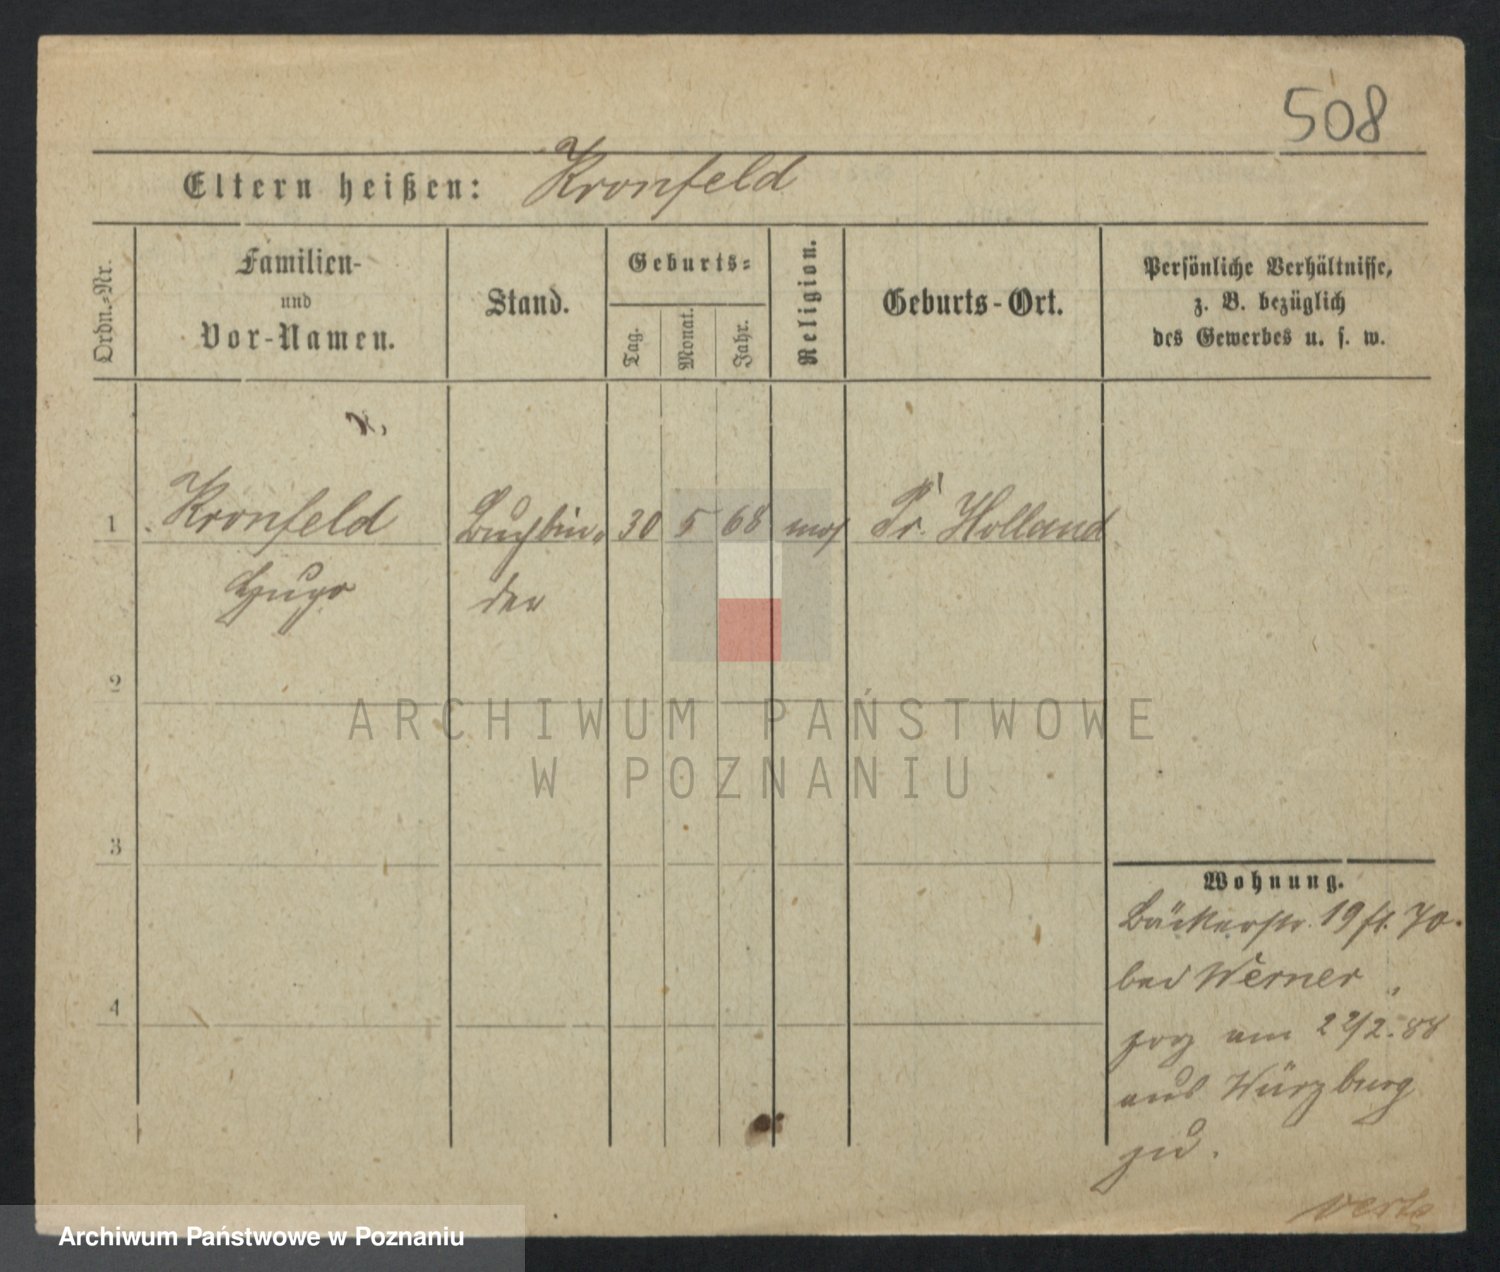 508
Eltern heißen: Kronfeld
Ordn.-Nr.
Familien-
und
Vor-Namen.
Stand.
Geburts-
Tag.
Monat.
Jahr.
Religion.
Geburts-Ort.
Persönliche Verhältnisse,
z. B. bezüglich
des Gewerbes u. s. w.
1 Kronfeld Buchbin- 30 5 68 mos Pr. Holland
Hugo der
2
3
4
Wohnung.
Bäckerstr. 19 70.
bei Werner
zog am 22/2.88
aus Würzburg
zu.
verte
ARCHIWUM PAŃSTWOWE
W POZNANIU
Archiwum Państwowe w Poznaniu